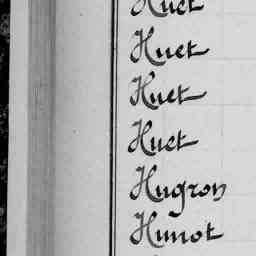 Huet
Huet
Huet
Huet
Hugron
Hunot